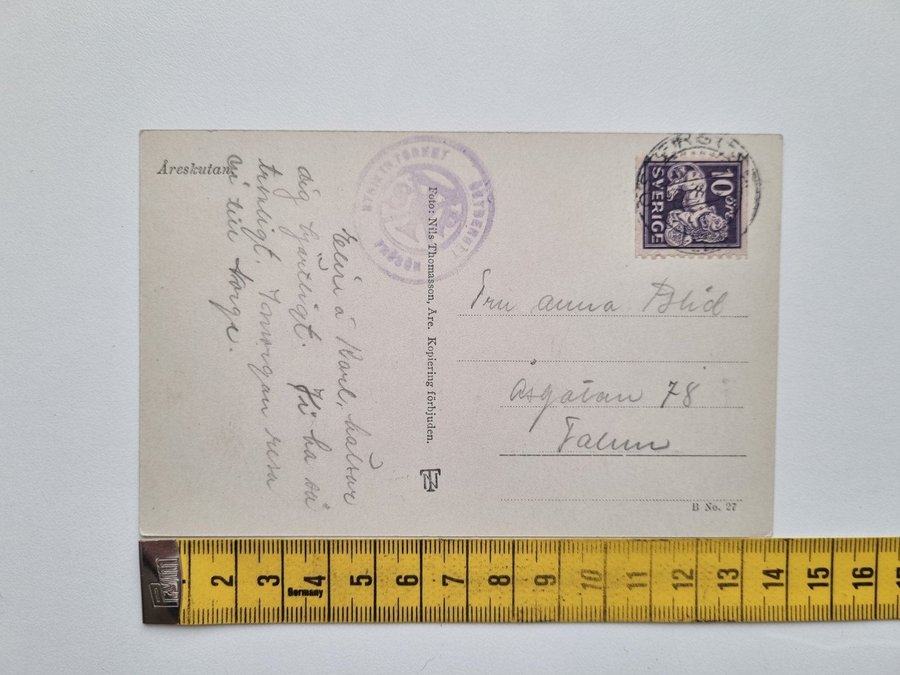 Åreskutan
Heini å Karl, hälsar
dig hjärtligt. Vi ha så
trevligt. I morgon resa
vi till Norge.
Foto: Nils Thomasson, Åre. Kopiering förbjuden.
NT
FRÖSÖN
10 ÖRE
SVERIGE
Fru Anna Blid
Åsgatan 78
Falun
B No. 27
2 3 4 5 6 7 8 9 10 11 12 13 14 15 16
Germany